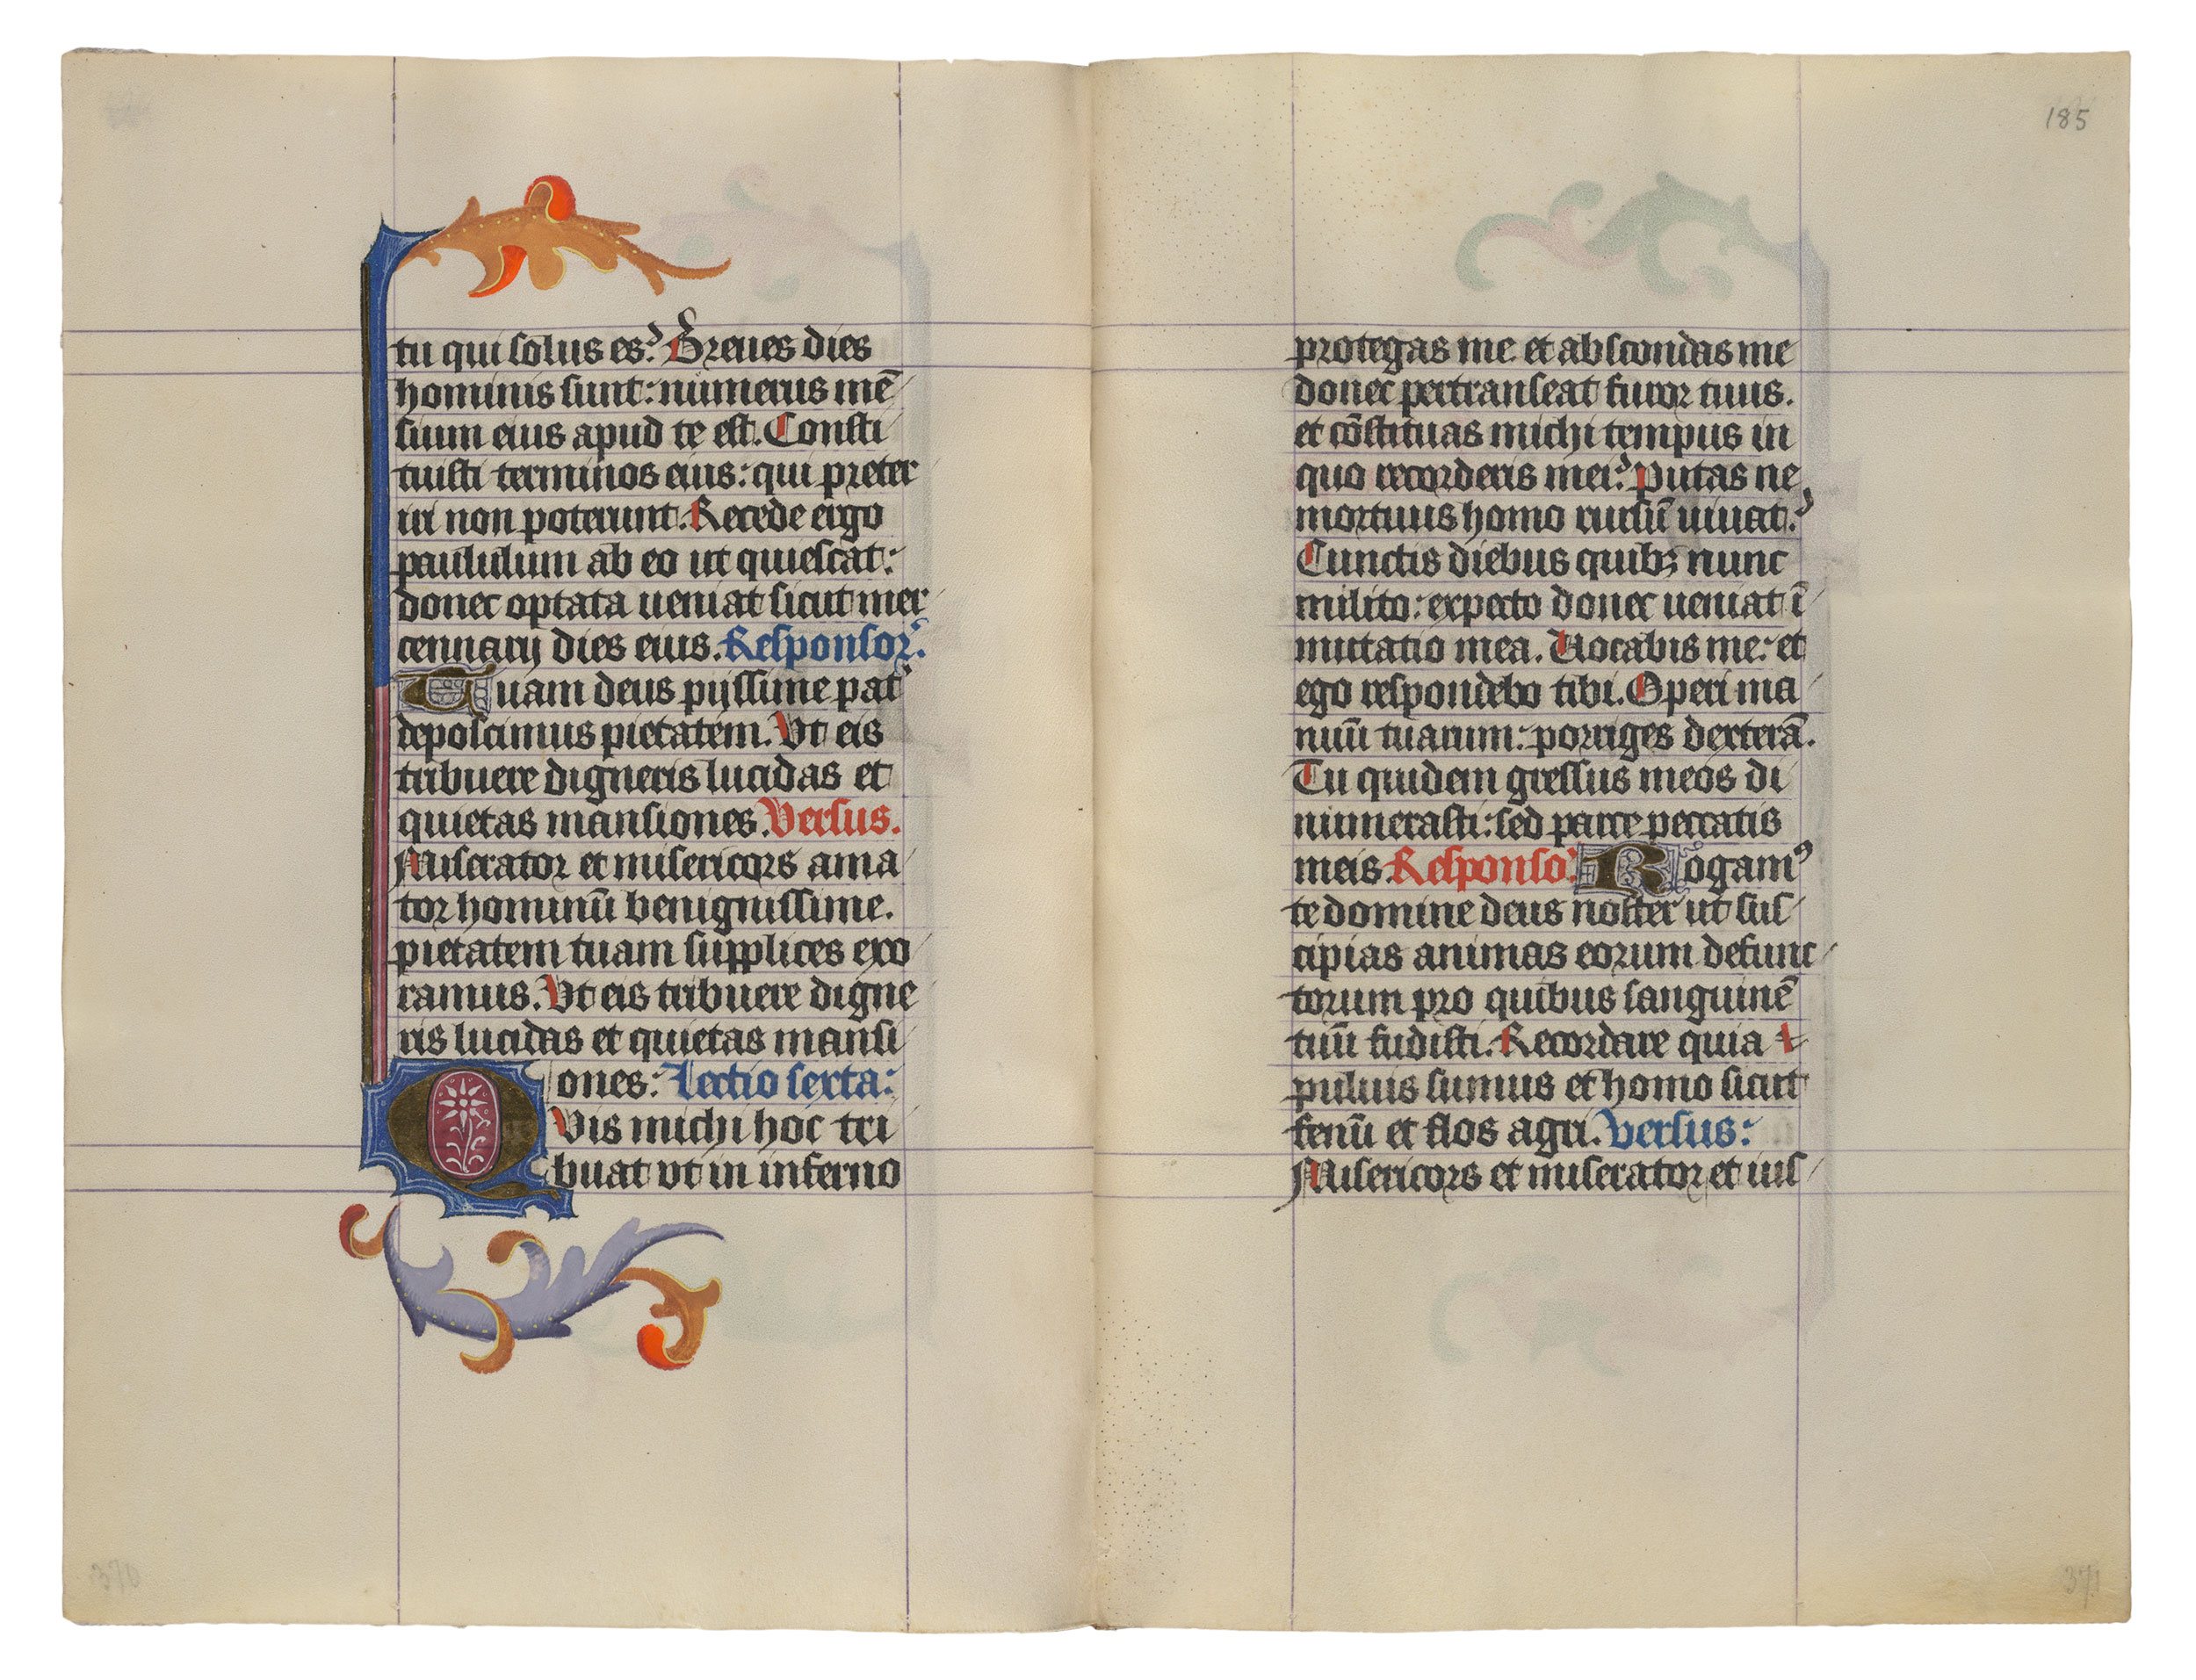 tu qui solus es? Breues dies
hominis sunt: numerus mē
sium eius apud te est. Consti
tuisti terminos eius: qui preter
iri non poterunt. Recede ergo
paululum ab eo ut quiescat:
donec optata ueniat sicut mer
cennarij dies eius. Responsor'.
Tuam deus pijssime pat'
deposcimus pietatem. Vt eis
tribuere digneris lucidas et
quietas mansiones. Versus.
Miserator et misericors ama
tor hominū benignissime.
pietatem tuam supplices exo
ramus. Vt eis tribuere digne
ris lucidas et quietas mansi
ones: Lectio sexta:
QVis michi hoc tri
buat vt in inferno
370
185
protegas me et abscondas me
donec pertranseat furor tuus.
et cōstituas michi tempus in
quo recorderis mei? Putas ne
mortuus homo rursū uiuat?
Cunctis diebus quibꝫ nunc
milito: expecto donec ueniat ī
mutatio mea. Uocabis me: et
ego respondebo tibi. Operi ma
nuū tuarum: porriges dexterā.
Tu quidem gressus meos di
numerasti: sed parce peccatis
meis. Responso' Rogamꝰ
te domine deus noster ut sus
cipias animas eorum defunc
torum pro quibus sanguinē
tuū fudisti. Recordare quia
puluis sumus et homo sicut
fenū et flos agri. Versus:
Misericors et miserator et ius
371